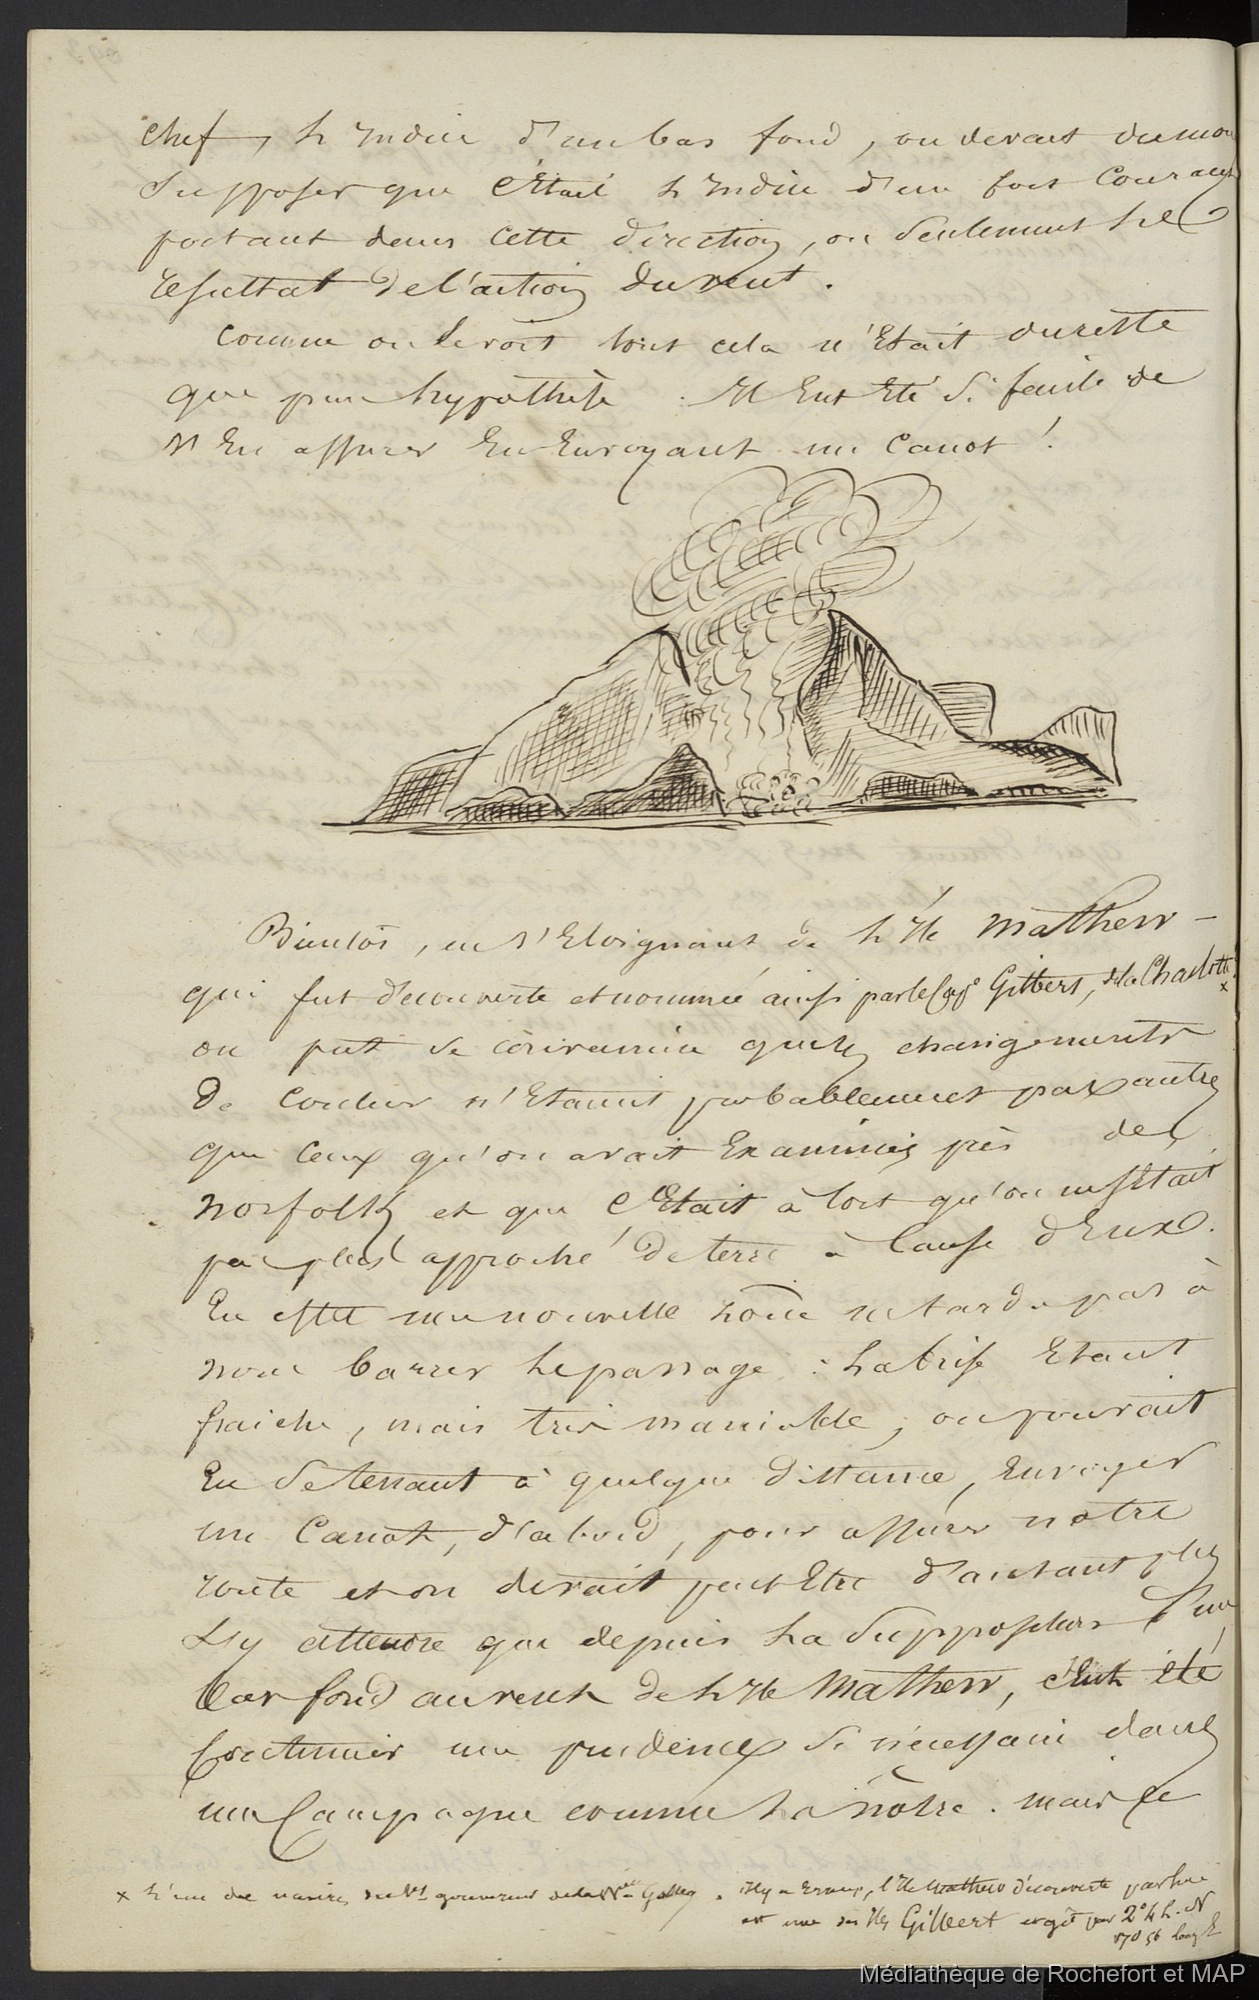 chef, l'Indice d'un bas fond, on devait du moins
Supposer que c'Etait l'Indice d'un fort Courant
portant dans cette direction, ou Seulement le
resultat de l'action du vent.
Comme on le voit tout cela n'Etait du reste
que pure hypothèse. Il Eut Eté Si facile de
s'En assurer En Envoyant un Canot!
Bientôt, en s'Eloignant de l'Ile Mathew -
qui fut découverte et nommée ainsi par le Cap.e Gilbert, de la Charlotte x
on put se convaincre que les changements
De Couleur n'Etaient probablement pas autres
que ceux qu'on avait Examinés près des
Norfolk et que c'Etait à tort qu'on ne s'Etait
pas plus approché De terre à Cause d'Eux.
En effet une nouvelle zône ne tarda pas à
nous barrer le passage : la brise Etant
fraiche, mais très maniable, on pouvait
En se tenant à quelque distance, Envoyer
un Canot, d'abord, pour assurer notre
route et on devait peut Etre d'autant plus
s'y attendre que depuis la Supposition d'un
bas fond au vent de l'Ile Mathew, c'Eut été
une prudence Si nécessaire dans
une Campagne comme la nôtre. mais le
x l'un des navires du 1er gouverneur de la N.lle Galles. Il y a Erreur, l'Ile Mathew découverte par lui
est une des Iles Gilbert et gît par 2° 4' L. N
170 56 long E
Médiathèque de Rochefort et MAP